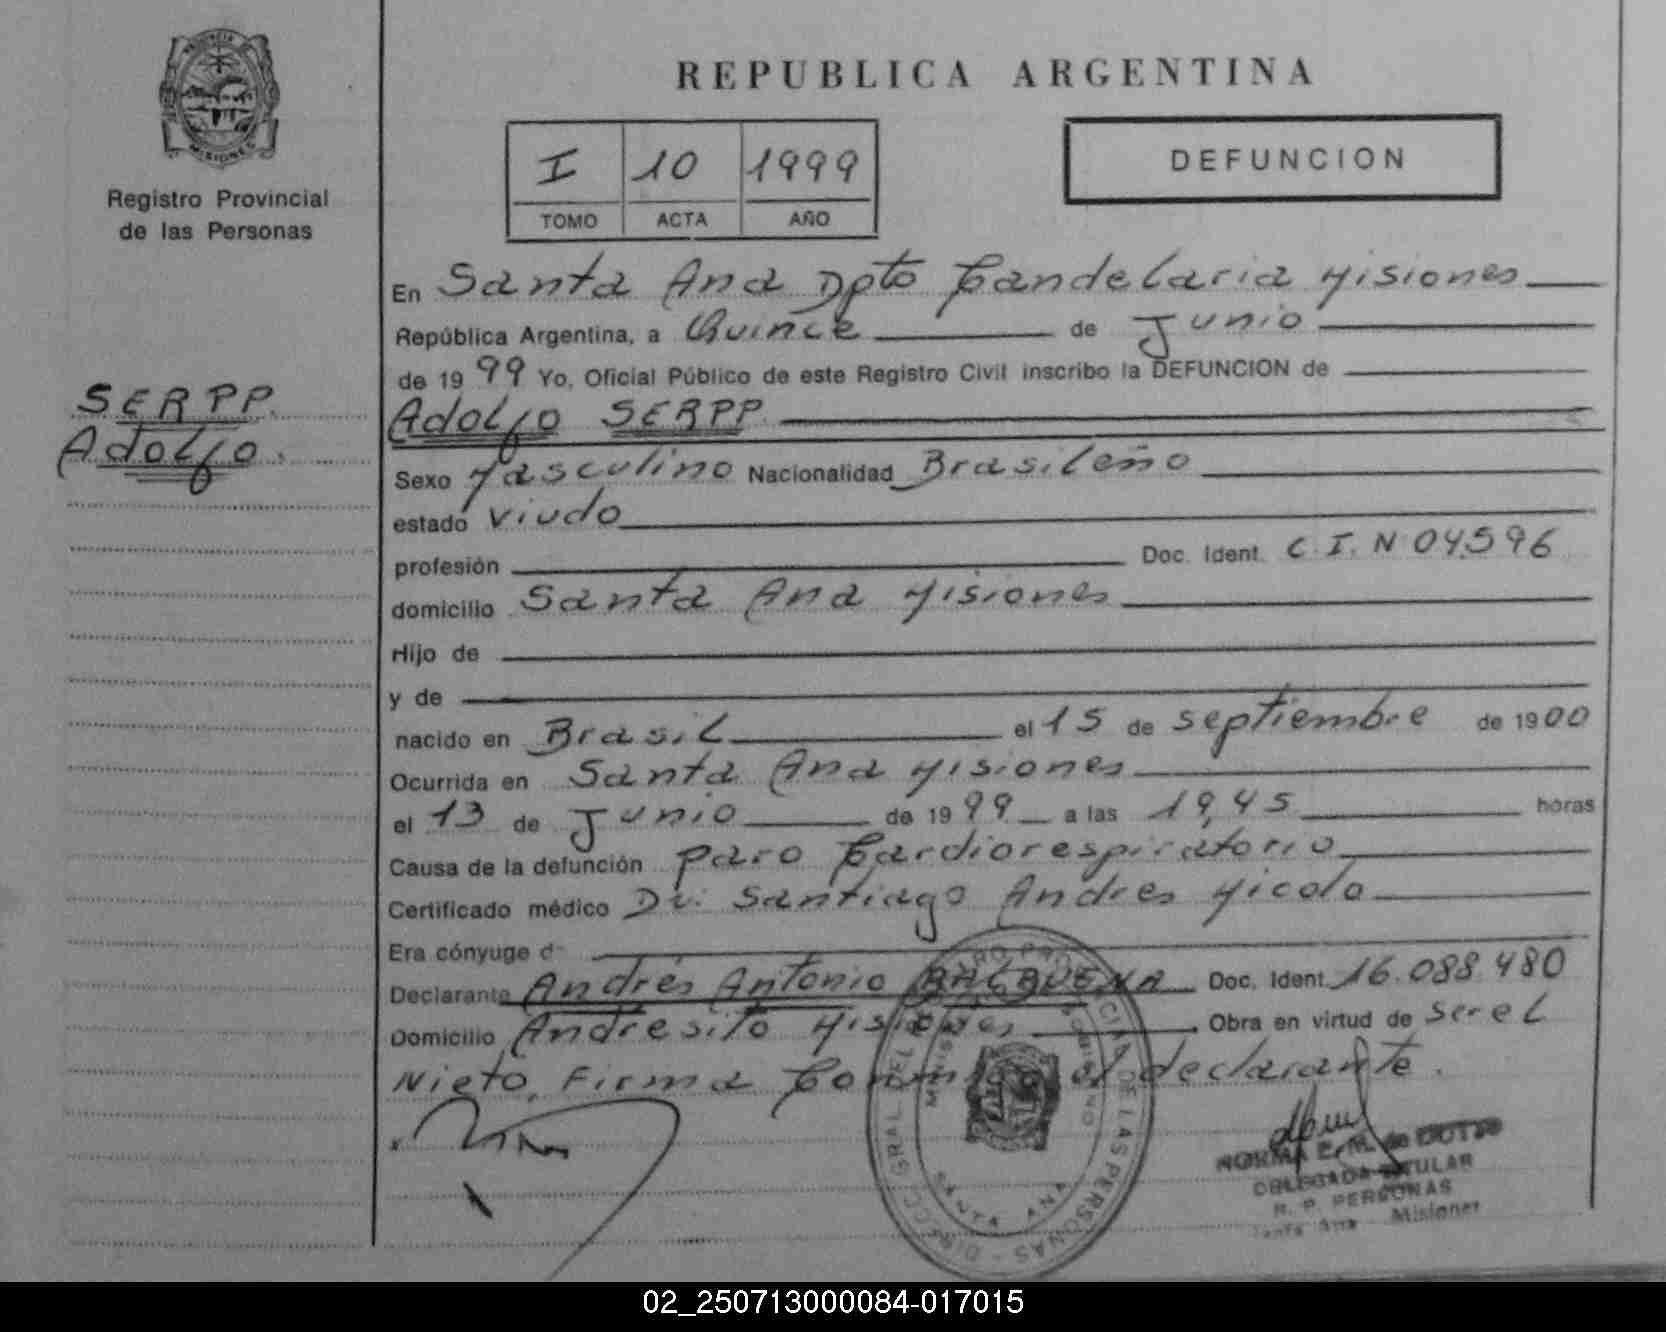 PROVINCIA DE
MISIONES
Registro Provincial
de las Personas
SERPP.
Adolfo.
REPUBLICA ARGENTINA
I 10 1999
TOMO ACTA AÑO
DEFUNCION
En Santa Ana Dpto Candelaria Misiones
República Argentina, a Quince de Junio
de 1999 Yo, Oficial Público de este Registro Civil inscribo la DEFUNCION de
Adolfo SERPP.
Sexo Masculino Nacionalidad Brasileño
estado Viudo
profesión Doc. Ident. C.I. N 04.596
domicilio Santa Ana Misiones
Hijo de
y de
nacido en Brasil el 15 de septiembre de 1900
Ocurrida en Santa Ana Misiones
el 13 de Junio de 1999 a las 19,45 horas
Causa de la defunción paro Cardiorespiratorio
Certificado médico Dr. Santiago Andres Micolo
Era cónyuge d
Declarante Andrés Antonio BALBUENA Doc. Ident. 16.088.480
Domicilio Andresito Misiones, Obra en virtud de ser el
Nieto, Firma Conmigo el declarante.
DIRECC. GRAL. DEL REGISTRO PROVINCIAL DE LAS PERSONAS
MINISTERIO GOBIERNO
SANTA ANA
NORMA E. M. de
DELEGADA TITULAR
R. P. PERSONAS
Santa Ana Misiones
02_250713000084-017015